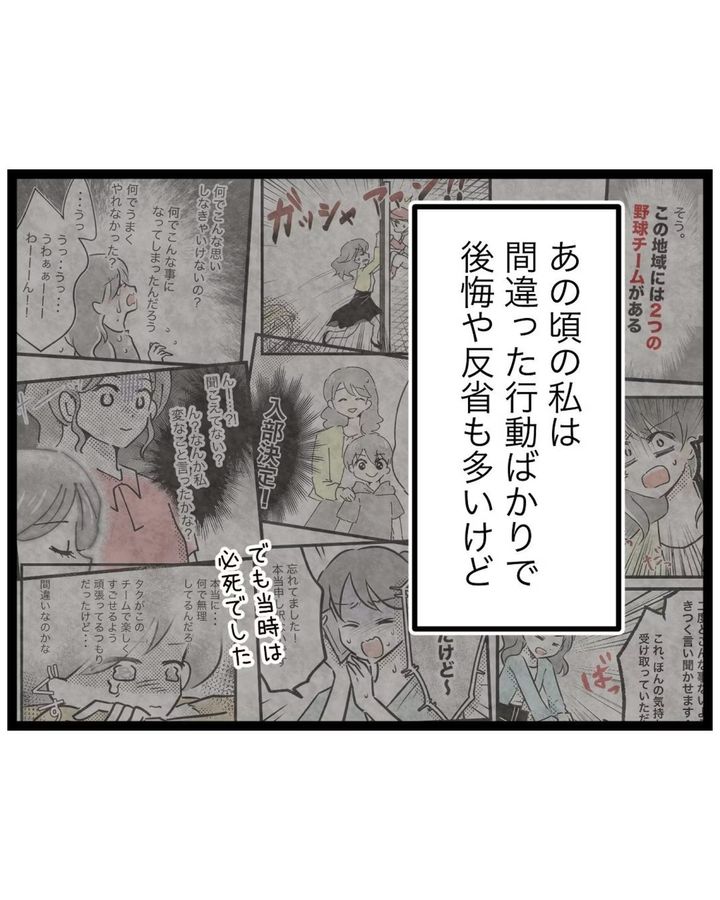 あの頃の私は
間違った行動ばかりで
後悔や反省も多いけど
でも当時は
必死でした
そう。
この地域には2つの
野球チームがある
ガッシャアアン!!
何でこんな思い
しなきゃいけないの?
何でこんな事に
なってしまったんだろう
何でうまく
やれなかった?
…うっ
うっ…うっ…
うわぁぁーー
わーーん!!
入部決定!
んー?!
聞こえてない?
ん?なんか私
変なこと言ったかな?
忘れてました!
本当申し訳
だけど〜
ばっ
きつく言い聞かせます
これ、ほんの気持
受け取っていただ
本当に…
何で無理
してるんだろ
タクがこの
チームで楽しく
すごせるよう
頑張ってるつもり
だったけど…
間違いなのかな